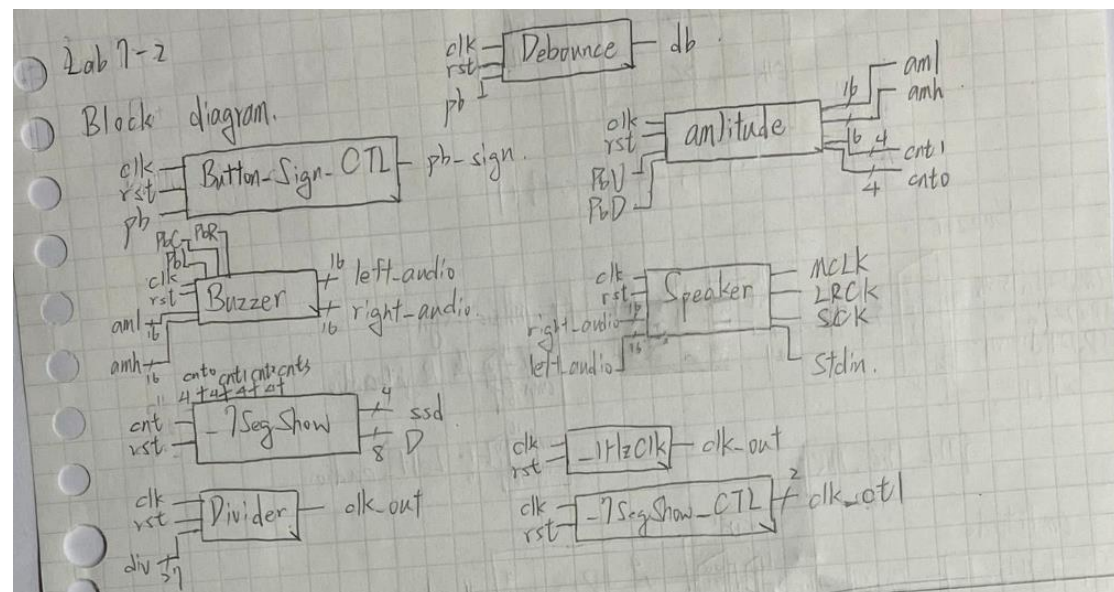 Lab 7-2
Block diagram.
clk
rst
pb
Debounce
db.
clk
rst
pb
Button-Sign-CTL
pb-sign.
clk
rst
PbU
PbD
amlitude
16
16
4
4
aml
amh
cnt1
cnt0
PbC
PbR
PbL
clk
rst
aml
16
amh
16
Buzzer
16
left_audio
16
right_audio.
clk
rst
right_audio
16
left_audio
16
Speaker
MCLK
LRCK
SCK
Stdin.
cnt0 cnt1 cnt2 cnt3
4 4 4 4
cnt
rst
_7SegShow
4
ssd
8
D
clk
rst
_1HzClk
clk_out
clk
rst
div
Divider
clk_out
clk
rst
_7SegShow_CTL
2
clk_ctl